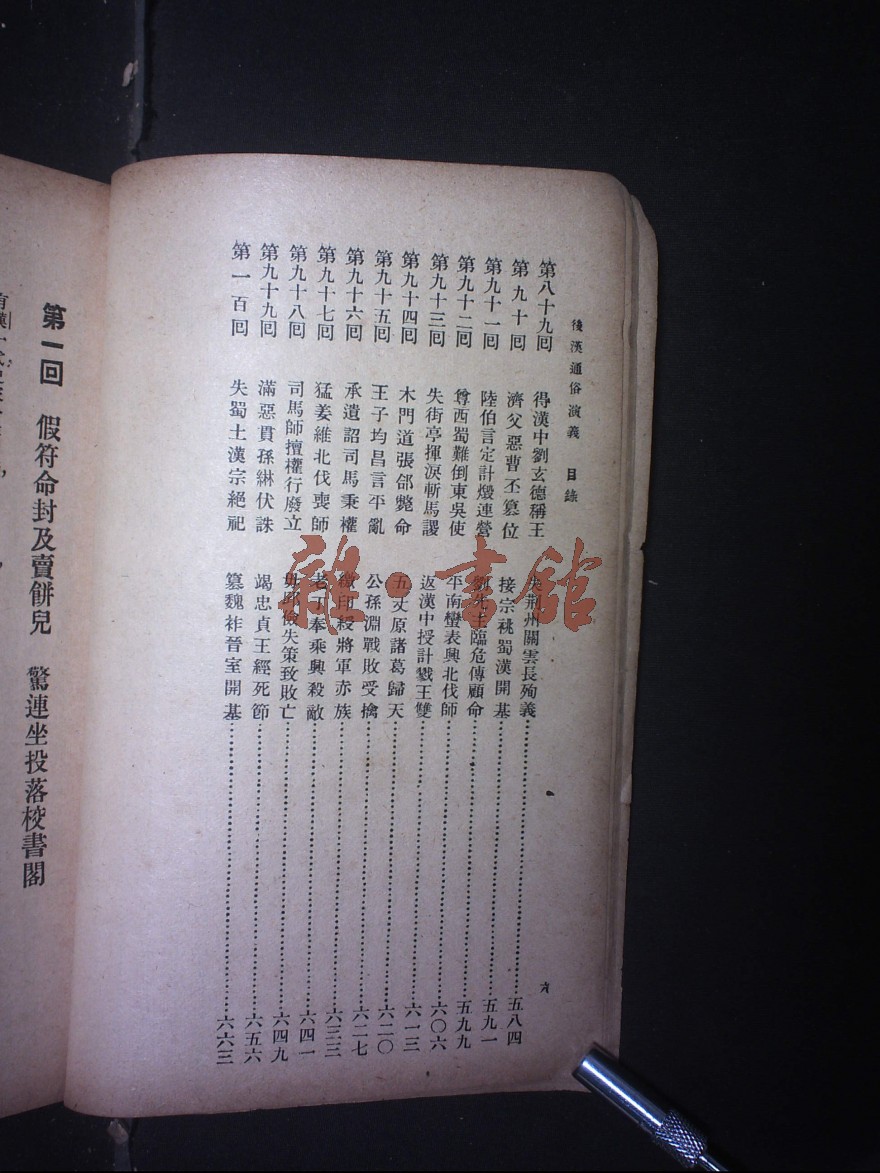 後漢通俗演義 目錄
第八十九囘 得漢中劉玄德稱王 失荆州關雲長殉義 五八四
第九十囘 濟父惡曹丕篡位 接宗祧蜀漢開基 五九一
第九十一囘 陸伯言定計燬連營 劉先主臨危傳顧命 五九九
第九十二囘 尊西蜀難倒東吳使 平南蠻表興北伐師 六〇六
第九十三囘 失街亭揮淚斬馬謖 返漢中授計戮王雙 六一三
第九十四囘 木門道張郃斃命 五丈原諸葛歸天 六二〇
第九十五囘 王子均昌言平亂 公孫淵戰敗受擒 六二七
第九十六囘 承遺詔司馬秉權 繳印綬將軍赤族 六三三
第九十七囘 猛姜維北伐喪師 老丁奉乘輿殺敵 六四一
第九十八囘 司馬師擅權行廢立 毋邱儉失策致敗亡 六四九
第九十九囘 滿惡貫孫綝伏誅 竭忠貞王經死節 六五六
第一百囘 失蜀土漢宗絕祀 篡魏祚晉室開基 六六三
六
第一囘 假符命封及賣餅兒 驚連坐投落校書閣
雜·書館